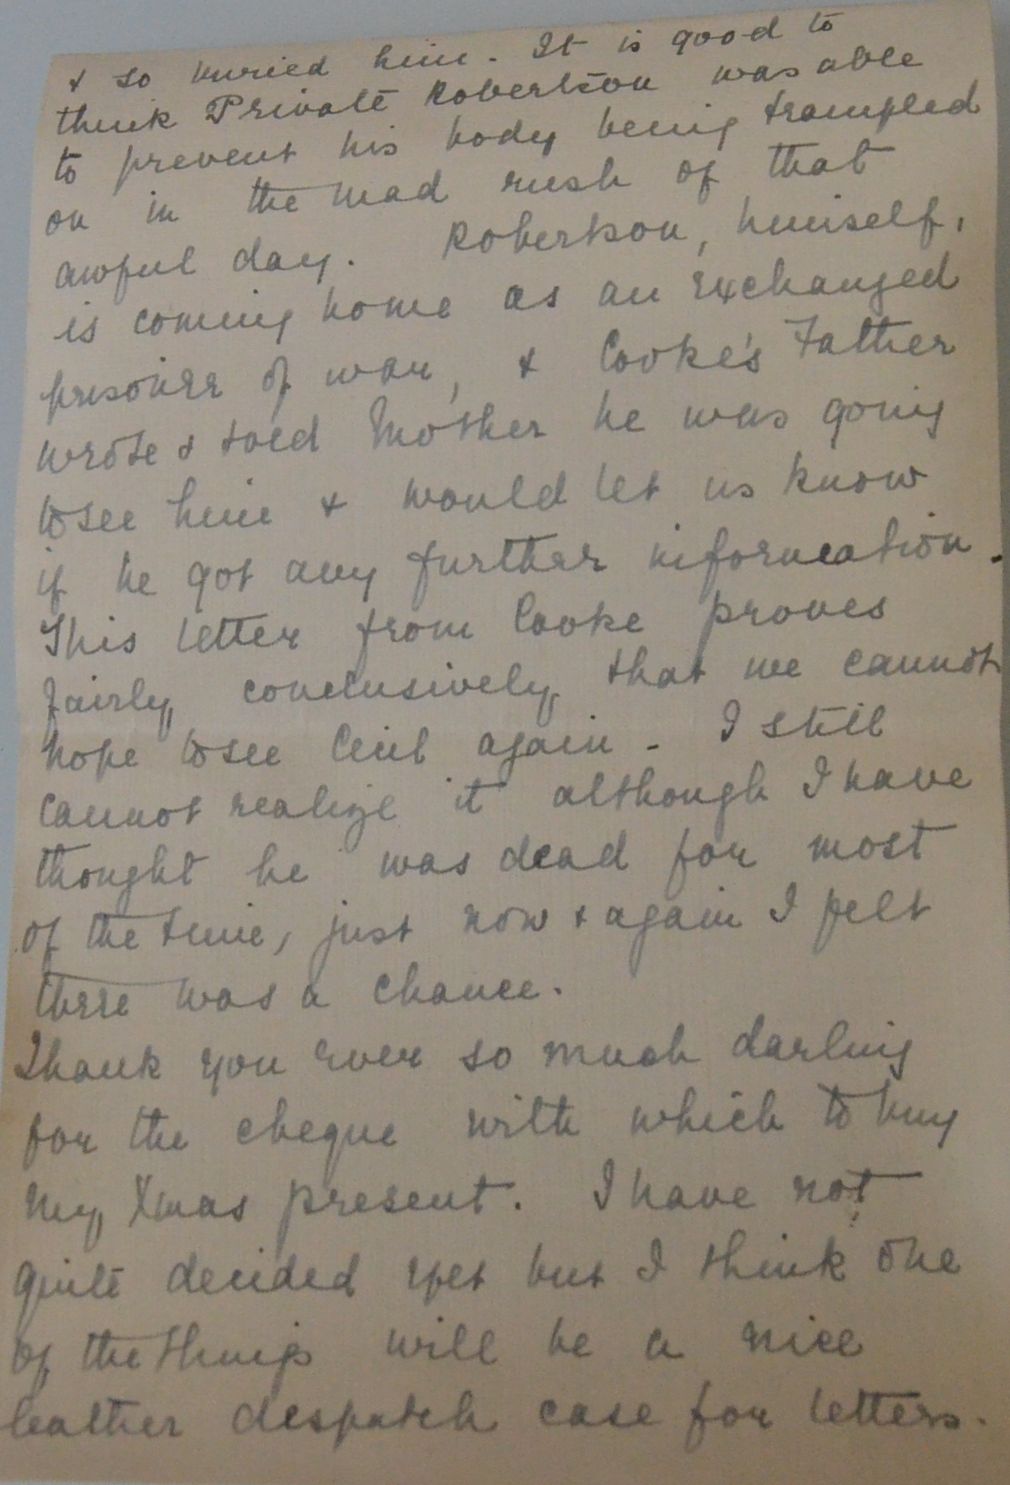 & so buried him. It is good to
think Private Robertson was able
to prevent his body being trampled
on in the mad rush of that
awful day. Robertson, himself,
is coming home as an exchanged
prisoner of war, & Cooke's Father
wrote & told Mother he was going
to see him & would let us know
if he got any further information.
This letter from Cooke proves
fairly conclusively that we cannot
hope to see Cecil again - I still
cannot realize it although I have
thought he was dead for most
of the time, just now & again I felt
there was a chance.
Thank you ever so much darling
for the cheque with which to buy
my Xmas present. I have not
quite decided yet but I think one
of the things will be a nice
leather despatch case for letters.